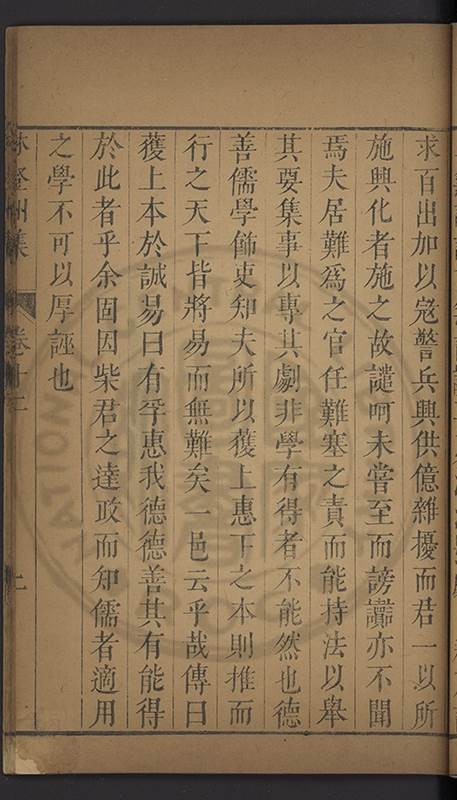 求百出加以寇警兵興供億雜擾而君一以所
施興化者施之故譴呵未嘗至而謗讟亦不聞
焉夫居難爲之官任難塞之責而能持法以舉
其要集事以專其劇非學有得者不能然也德
善儒學飾吏知夫所以獲上惠下之本則推而
行之天下皆將易而無難矣一邑云乎哉傳曰
獲上本於誠易曰有孚惠我德德善其有能得
於此者乎余固因柴君之達政而知儒者適用
之學不可以厚誣也
林登州集 卷十二